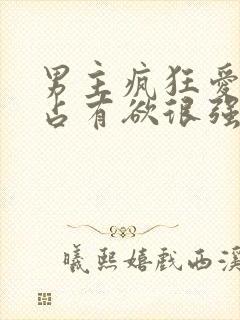 男主疯狂爱
占有欲很强
曦熙嬉戏西溪